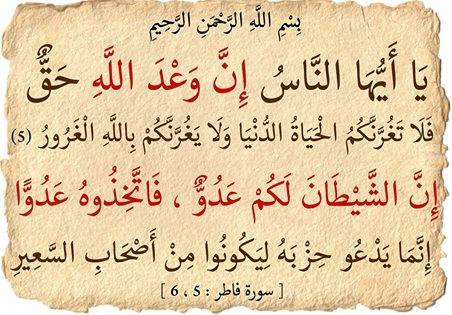 بِسْمِ اللَّهِ الرَّحْمَنِ الرَّحِيمِ
يَا أَيُّهَا النَّاسُ إِنَّ وَعْدَ اللَّهِ حَقٌّ
فَلَا تَغُرَّنَّكُمُ الْحَيَاةُ الدُّنْيَا وَلَا يَغُرَّنَّكُمْ بِاللَّهِ الْغَرُورُ (5)
إِنَّ الشَّيْطَانَ لَكُمْ عَدُوٌّ ، فَاتَّخِذُوهُ عَدُوًّا
إِنَّمَا يَدْعُو حِزْبَهُ لِيَكُونُوا مِنْ أَصْحَابِ السَّعِيرِ
[ سورة فاطر : 5 ، 6 ]